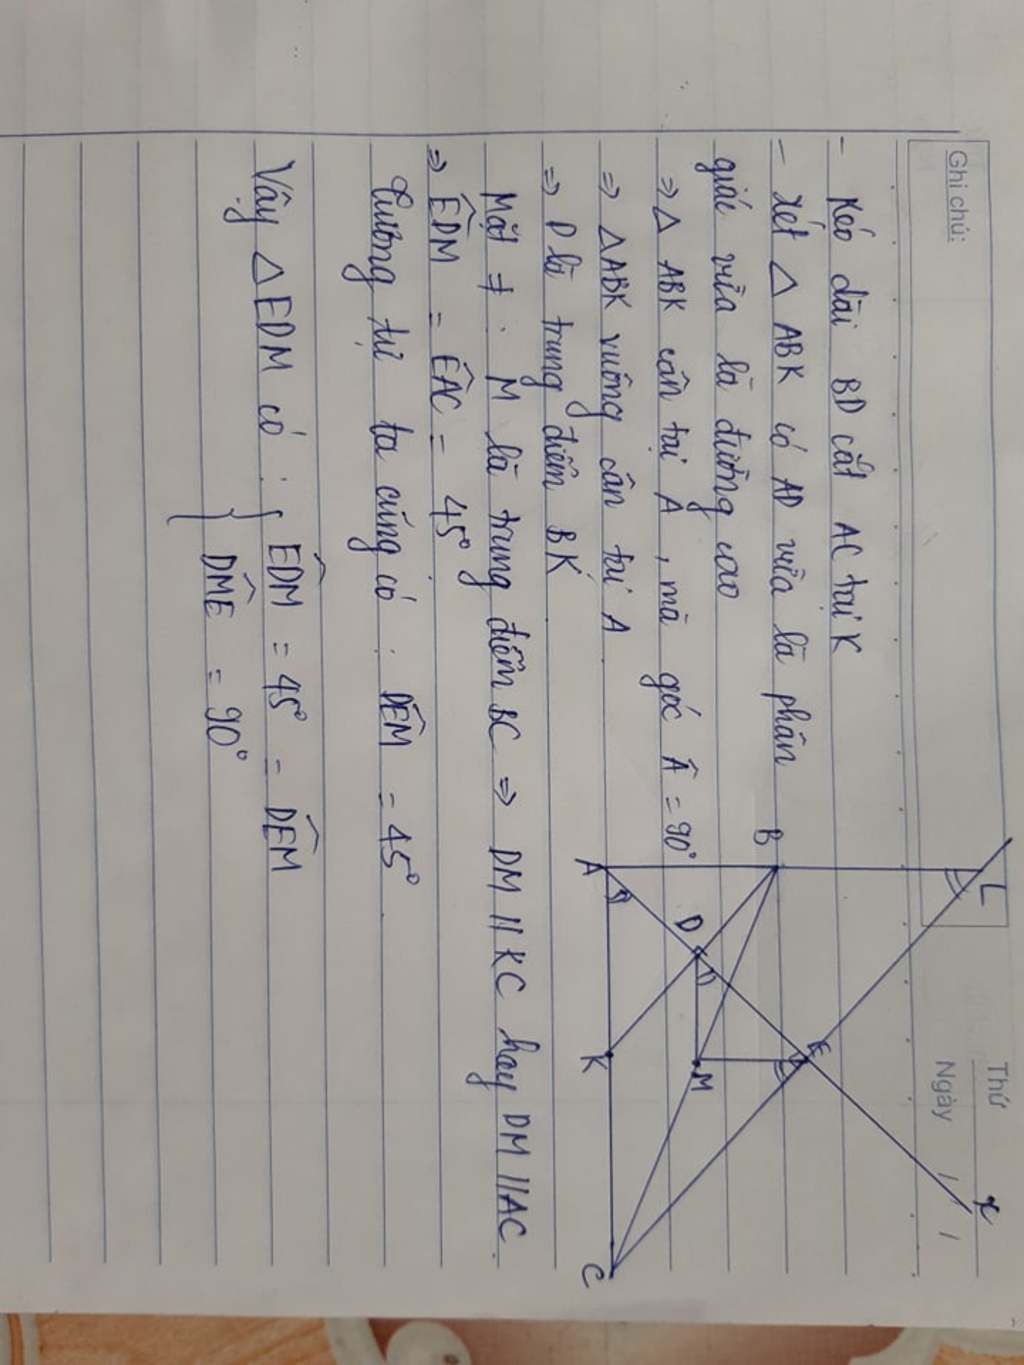 Ghi chú:
Thứ
Ngày / /
- Kéo dài BD cắt AC tại K
- Xét △ ABK có AD vừa là phân
giác vừa là đường cao
⇒ △ ABK cân tại A, mà góc Â = 90°
⇒ △ABK vuông cân tại A
⇒ D là trung điểm BK
Mặt ≠ : M là trung điểm BC ⇒ DM // KC hay DM // AC
⇒ EDM̂ = EAĈ = 45°
Tương tự ta cũng có : DEM̂ = 45°
Vậy △EDM có : { EDM̂ = 45° = DEM̂
DMÊ = 90°
L
x
B
E
D
M
A
K
C